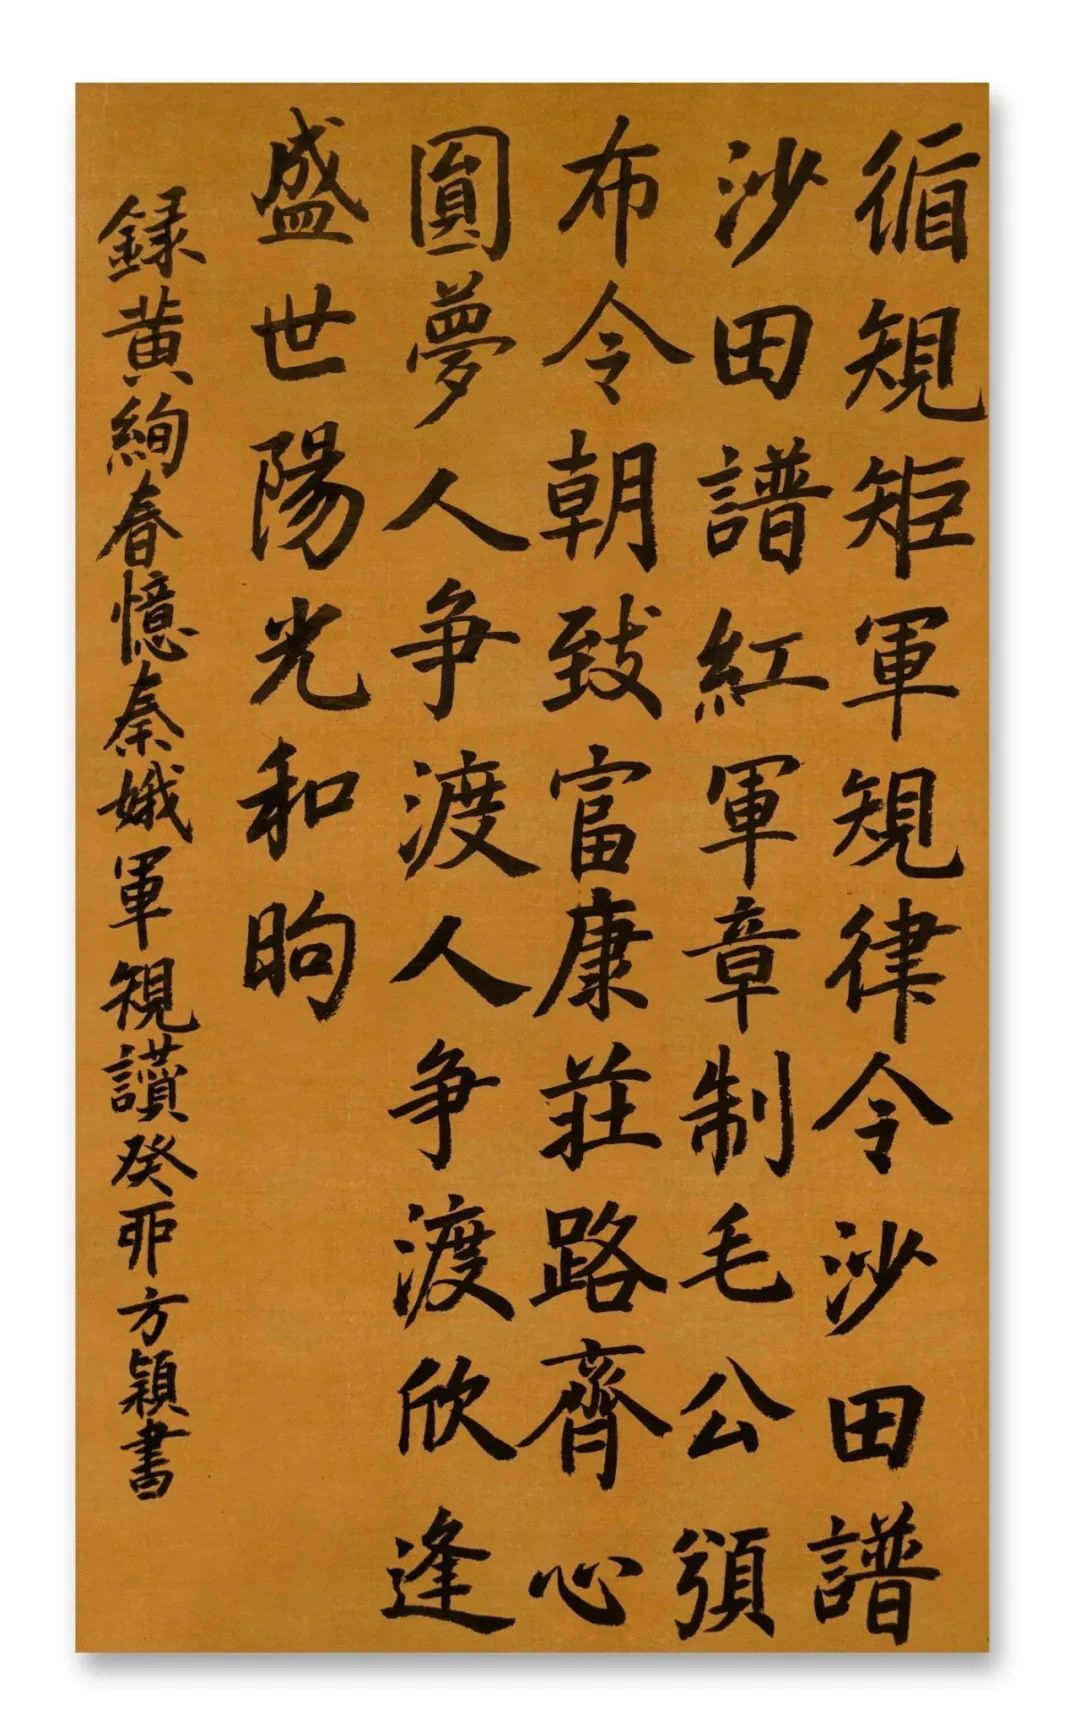 循規矩軍規律令沙田譜
沙田譜紅軍章制毛公頒
布令朝致富康莊路齊心
圓夢人争渡人争渡欣逢
盛世陽光和昫
録黄絢春憶秦娥軍規讃癸卯方穎書